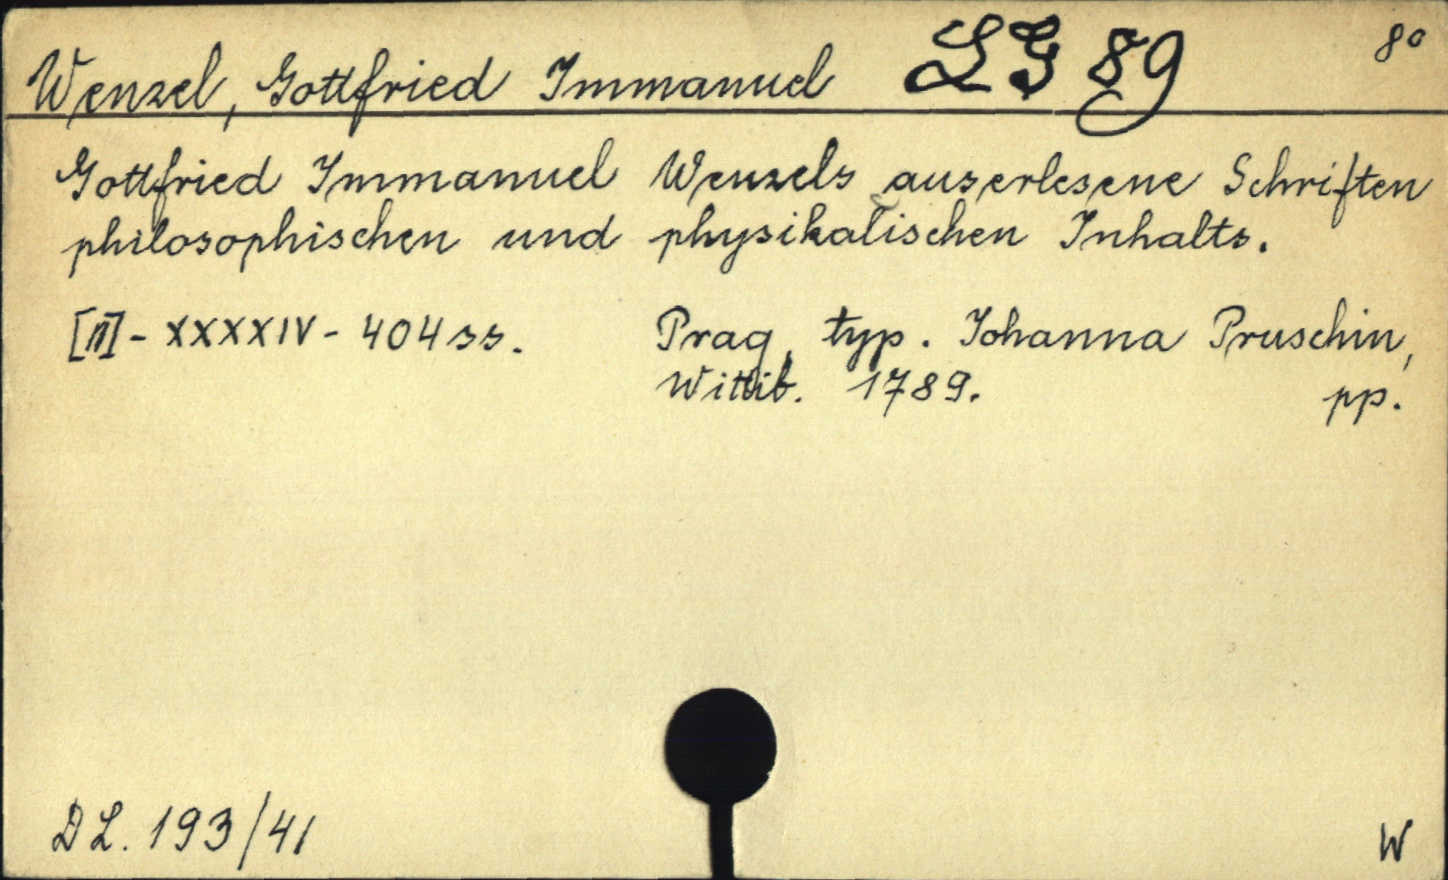 Wenzel, Gottfried Immanuel LG 89 8°
Gottfried Immanuel Wenzels auserlesene Schriften
philosophischen und physikalischen Inhalts.
[II]-XXXXIV-404ss. Prag, typ. Johanna Pruschin,
Wittib. 1789. pp.
DL. 193/41 W